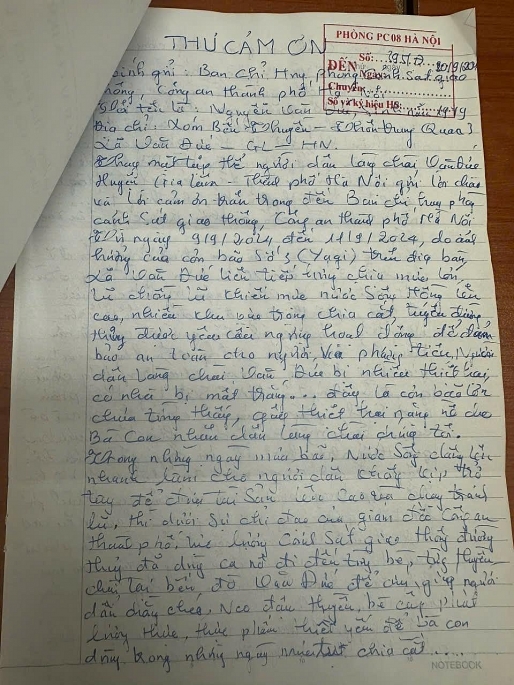 THƯ CẢM ƠN
PHÒNG PC08 HÀ NỘI
ĐẾN Số:
Chuyển:
Số và ký hiệu HS:
Kính gửi: Ban chỉ Huy phòng cảnh sát giao
thông, Công an thành phố Hà Nội
Tôi tên là: Nguyễn Văn
Địa chỉ: Xóm Bến Thuyền - Thôn Trung Quan 3
Xã Văn Đức - GL - HN.
Thay mặt tập thể người dân làng chài Văn Đức
Huyện Gia Lâm - Thành phố Hà Nội gửi lời chào
và lời cảm ơn trân trọng đến Ban chỉ huy phòng
cảnh sát giao thông, Công an thành phố Hà Nội
Từ ngày 9/9/2024 đến 11/9/2024, do ảnh
hưởng của cơn bão Số 3 (Yagi) trên địa bàn,
Xã Văn Đức liên tiếp trong chịu mưa lớn,
lũ chồng lũ khiến mức nước Sông Hồng lên
cao, nhiều khu vực trong chia cắt, tuyến đường
thủy được yêu cầu ngừng hoạt động để đảm
bảo an toàn cho người, và phương tiện, Người
dân Làng chài Văn Đức bị nhiều thiệt hại,
có nhà bị mất trắng... đây là cơn bão lớn
chưa từng thấy, gây thiệt hại nặng nề cho
Bà Con nhân dân làng chài chúng tôi.
Trong những ngày mưa bão, Nước Sông dâng lên
nhanh làm cho người dân không kịp trở
tay để đưa tài Sản lên cao chạy tránh
lũ, thì dưới sự chỉ đạo của giám đốc Công an
thành phố, lực lượng Cảnh Sát giao thông đường
thủy đã dùng ca nô đi đến từng bè, từng thuyền
chài tại bến đò Văn Đức để cứu giúp người
dân chằng chéo, Neo đậu thuyền, bè cấp phát
lương thực, thực phẩm thiết yếu để bà con
dùng trong những ngày chia cắt.....
NOTEBOOK